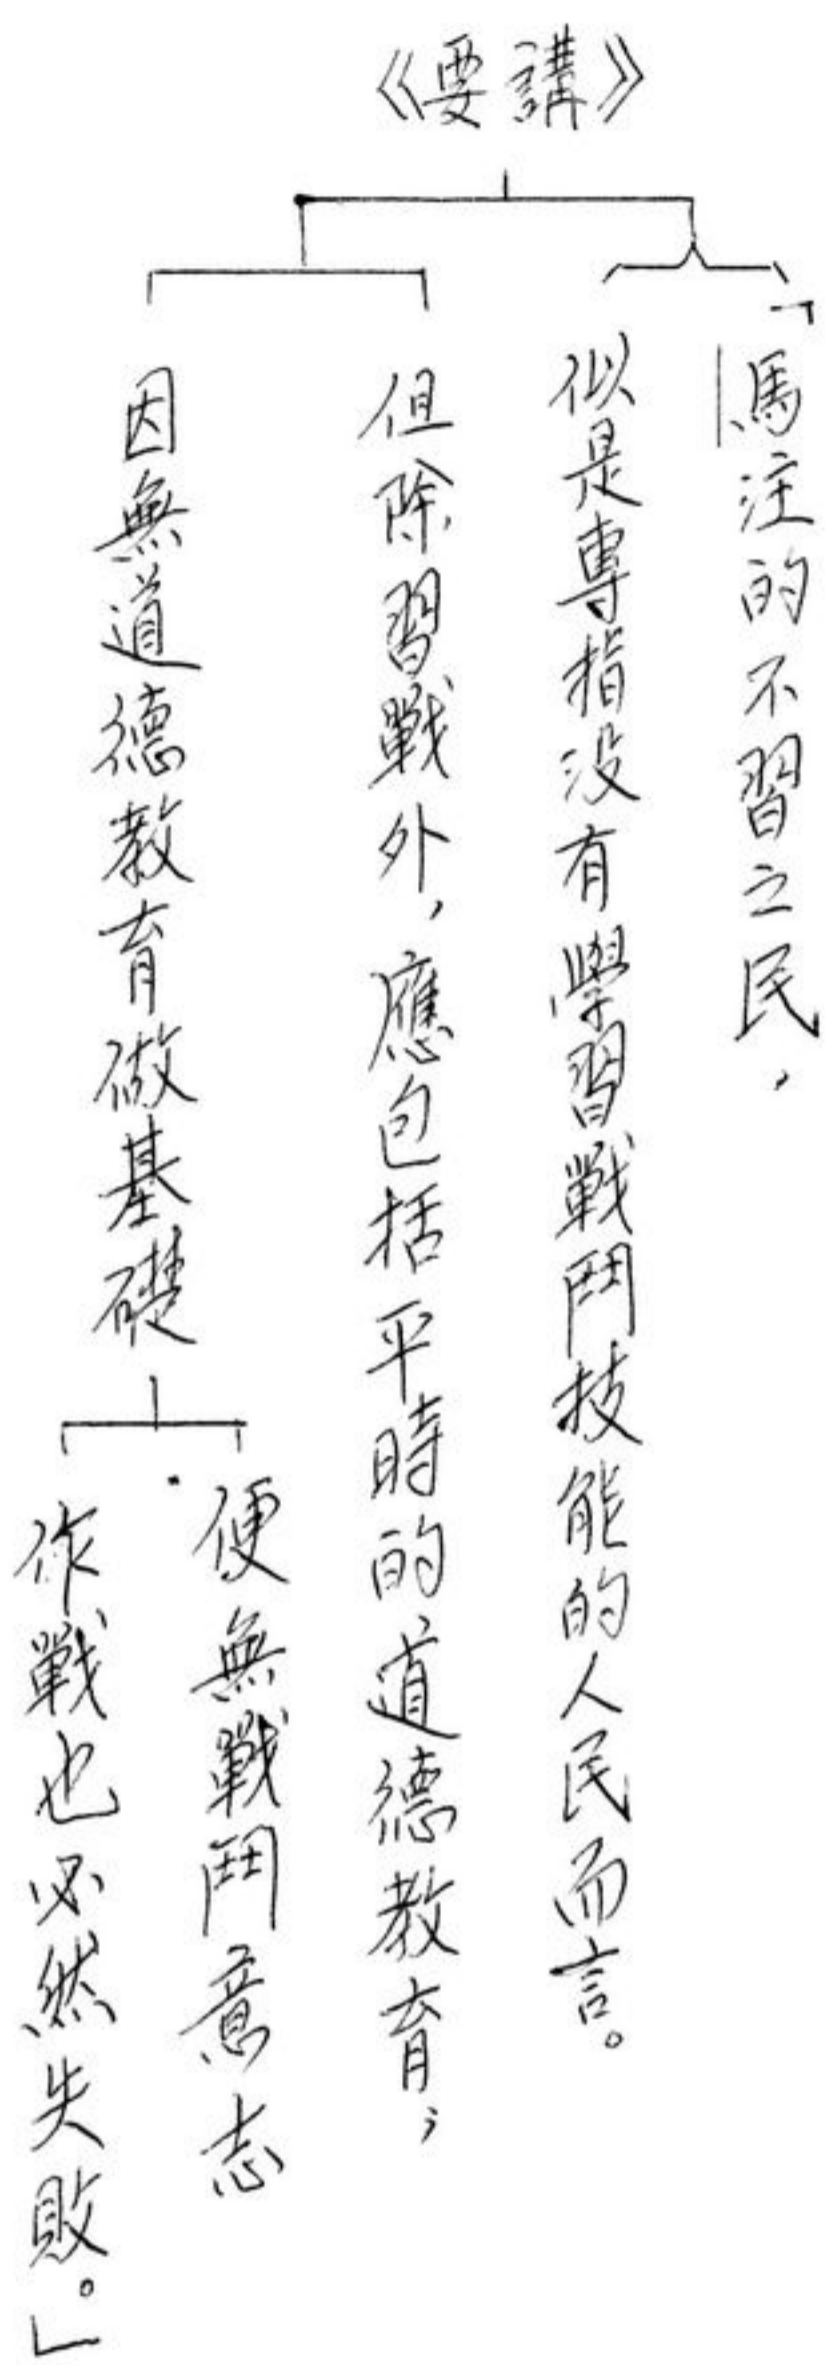 《要講》
「馬注的不習之民，
似是專指没有學習戰鬥技能的人民而言。
但除習戰外，應包括平時的道德教育；
因無道德教育做基礎
便無戰鬥意志
作戰也必然失敗。」